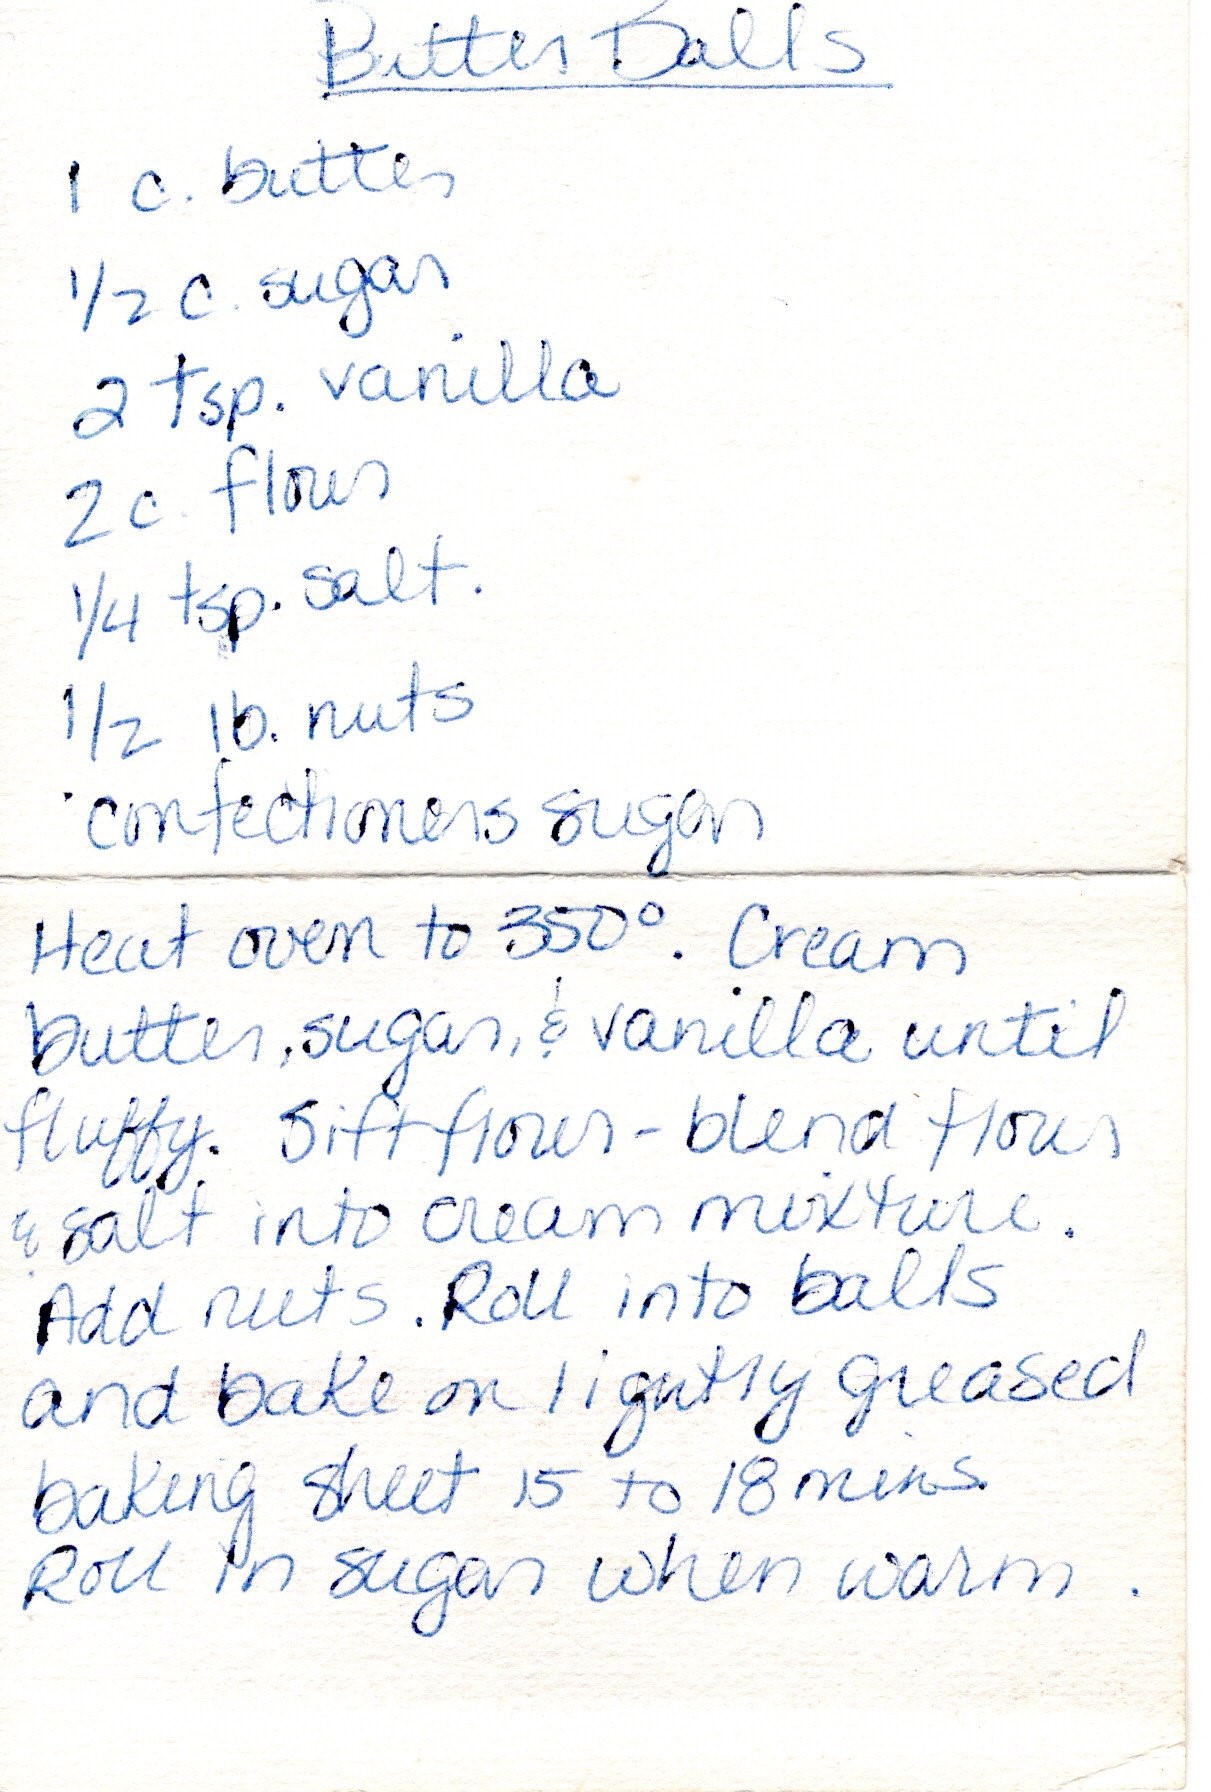 Butter Balls
1 c. butter
1/2 c. sugar
2 tsp. vanilla
2 c. flour
1/4 tsp. salt.
1/2 lb. nuts
confectioners sugar
Heat oven to 350°. Cream
butter, sugar, & vanilla until
fluffy. Sift flour - blend flour
& salt into cream mixture.
Add nuts. Roll into balls
and bake on lightly greased
baking sheet 15 to 18 mins.
Roll in sugar when warm.